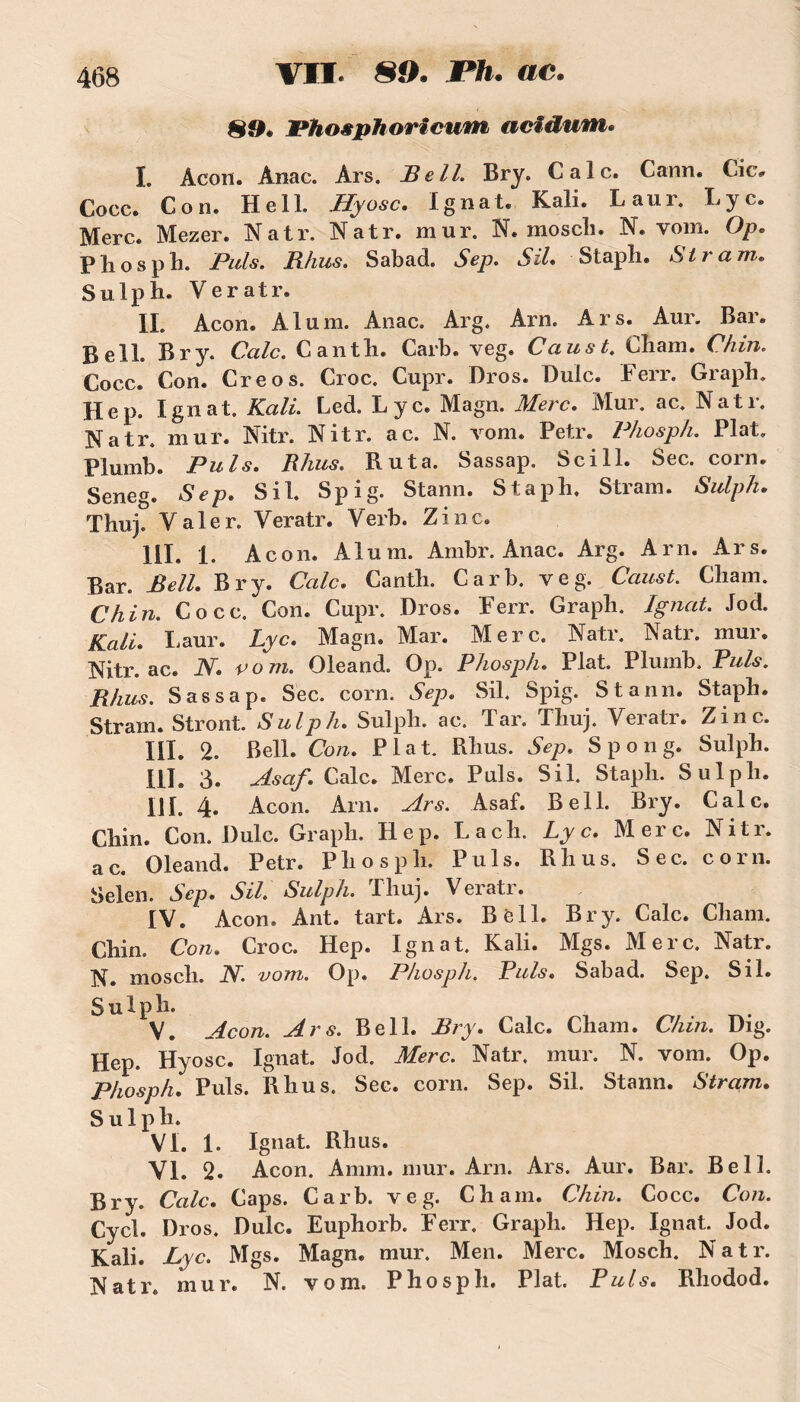 468 VII. 89. Ph. ac.
89. Phosphoricum acidum.
I. Acon. Anac. Ars. Bell. Bry. Calc. Cann. Cic.
Cocc. Con. Hell. Hyosc. Ignat. Kali. Laur. Lyc.
Merc. Mezer. Natr. Natr. mur. N. mosch. N. vom. Op.
Phosph. Puls. Rhus. Sabad. Sep. Sil. Staph. Stram.
Sulph. Veratr.
II. Acon. Alum. Anac. Arg. Arn. Ars. Aur. Bar.
Bell. Bry. Calc. Canth. Carb. veg. Caust. Cham. Chin.
Cocc. Con. Creos. Croc. Cupr. Dros. Dulc. Ferr. Graph.
Hep. Ignat. Kali. Led. Lyc. Magn. Merc. Mur. ac. Natr.
Natr. mur. Nitr. Nitr. ac. N. vom. Petr. Phosph. Plat.
Plumb. Puls. Rhus. Ruta. Sassap. Scill. Sec. corn.
Seneg. Sep. Sil. Spig. Stann. Staph. Stram. Sulph.
Thuj. Valer. Veratr. Verb. Zinc.
III. 1. Acon. Alum. Ambr. Anac. Arg. Arn. Ars.
Bar. Bell. Bry. Calc. Canth. Carb. veg. Caust. Cham.
Chin. Cocc. Con. Cupr. Dros. Ferr. Graph. Ignat. Jod.
Kali. Laur. Lyc. Magn. Mar. Merc. Natr. Natr. mur.
Nitr. ac. N. vom. Oleand. Op. Phosph. Plat. Plumb. Puls.
Rhus. Sassap. Sec. corn. Sep. Sil. Spig. Stann. Staph.
Stram. Stront. Sulph. Sulph. ac. Tar. Thuj. Veratr. Zinc.
III. 2. Bell. Con. Plat. Rhus. Sep. Spong. Sulph.
III. 3. Asaf. Calc. Merc. Puls. Sil. Staph. Sulph.
III. 4. Acon. Arn. Ars. Asaf. Bell. Bry. Calc.
Chin. Con. Dulc. Graph. Hep. Lach. Lyc. Merc. Nitr.
ac. Oleand. Petr. Phosph. Puls. Rhus. Sec. corn.
Selen. Sep. Sil. Sulph. Thuj. Veratr.
IV. Acon. Ant. tart. Ars. Bell. Bry. Calc. Cham.
Chin. Con. Croc. Hep. Ignat. Kali. Mgs. Merc. Natr.
N. mosch. N. vom. Op. Phosph. Puls. Sabad. Sep. Sil.
Sulph.
V. Acon. Ars. Bell. Bry. Calc. Cham. Chin. Dig.
Hep. Hyosc. Ignat. Jod. Merc. Natr. mur. N. vom. Op.
Phosph. Puls. Rhus. Sec. corn. Sep. Sil. Stann. Stram.
Sulph.
VI. 1. Ignat. Rhus.
VI. 2. Acon. Amm. mur. Arn. Ars. Aur. Bar. Bell.
Bry. Calc. Caps. Carb. veg. Cham. Chin. Cocc. Con.
Cycl. Dros. Dulc. Euphorb. Ferr. Graph. Hep. Ignat. Jod.
Kali. Lyc. Mgs. Magn. mur. Men. Merc. Mosch. Natr.
Natr. mur. N. vom. Phosph. Plat. Puls. Rhodod.